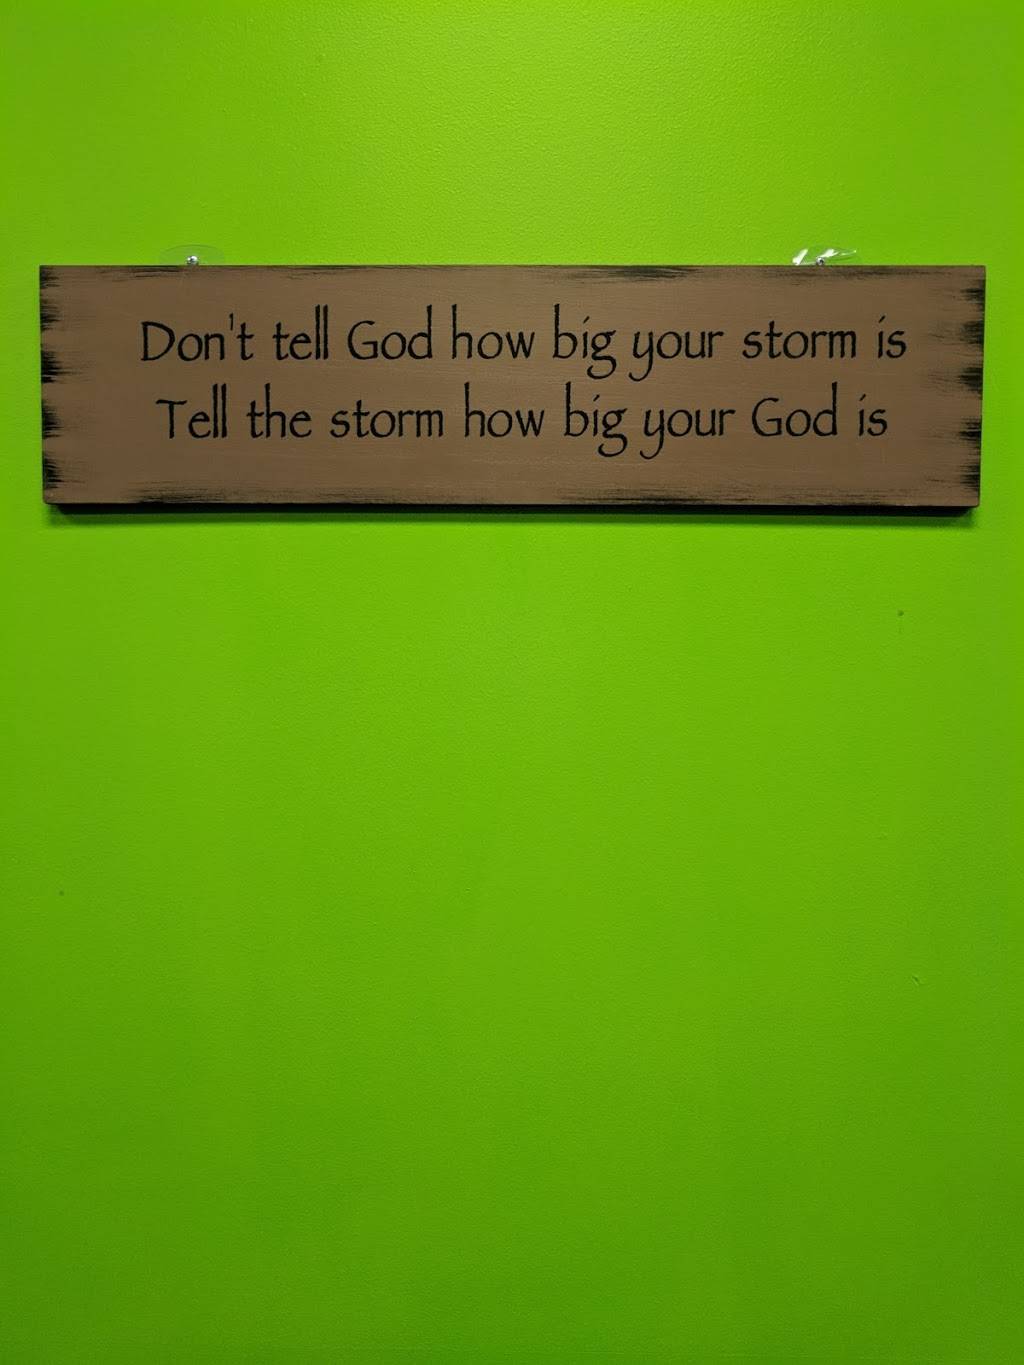 Don't tell God how big your storm is
Tell the storm how big your God is